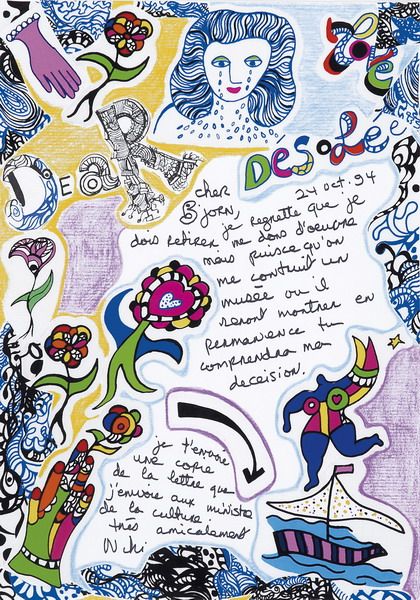 DeaR
DésoLée
24 oct. 94
cher
Bjorn, je regrette que je
dois retirer me dons d'oeuvre
mais puisce qu'on
me contruit un
musée ou il
seront montrer en
permanence tu
comprendra ma
decision.
je t'envoie
une copie
de la lettre que
j'envoie aux ministre
de la culture.
très amicalement
Niki